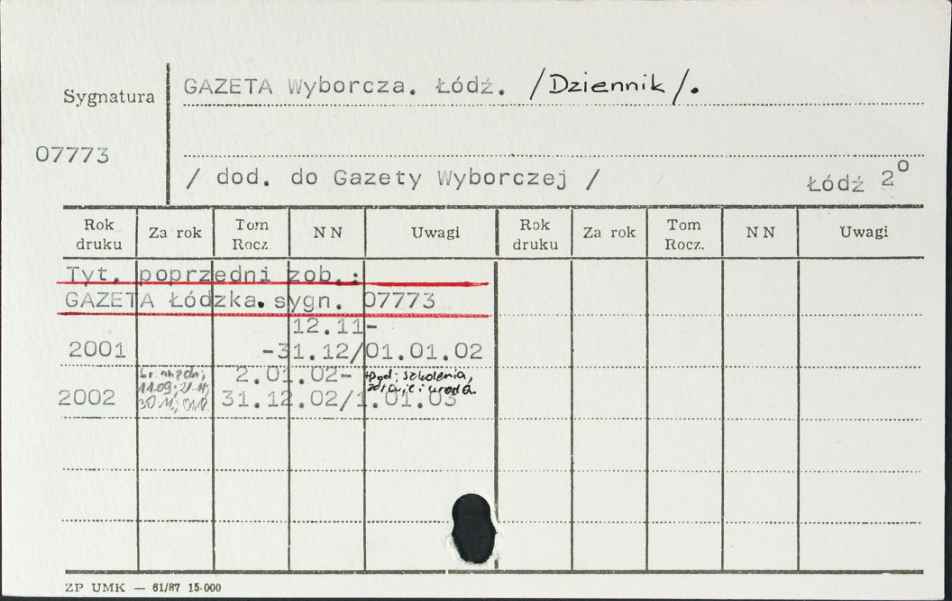 GAZETA Wyborcza. Łódź. /Dziennik/.
Sygnatura
07773
/ dod. do Gazety Wyborczej / Łódź 2°
Rok druku Za rok Tom Rocz N N Uwagi Rok druku Za rok Tom Rocz. N N Uwagi
Tyt. poprzedni zob.:
GAZETA Łódzka. sygn. 07773
12.11-
2001 -31.12/01.01.02
2.01.02- szkolenia,
11.09; i uroda
2002 31.12.02/1.01.03
ZP UMK — 61/87 15-000